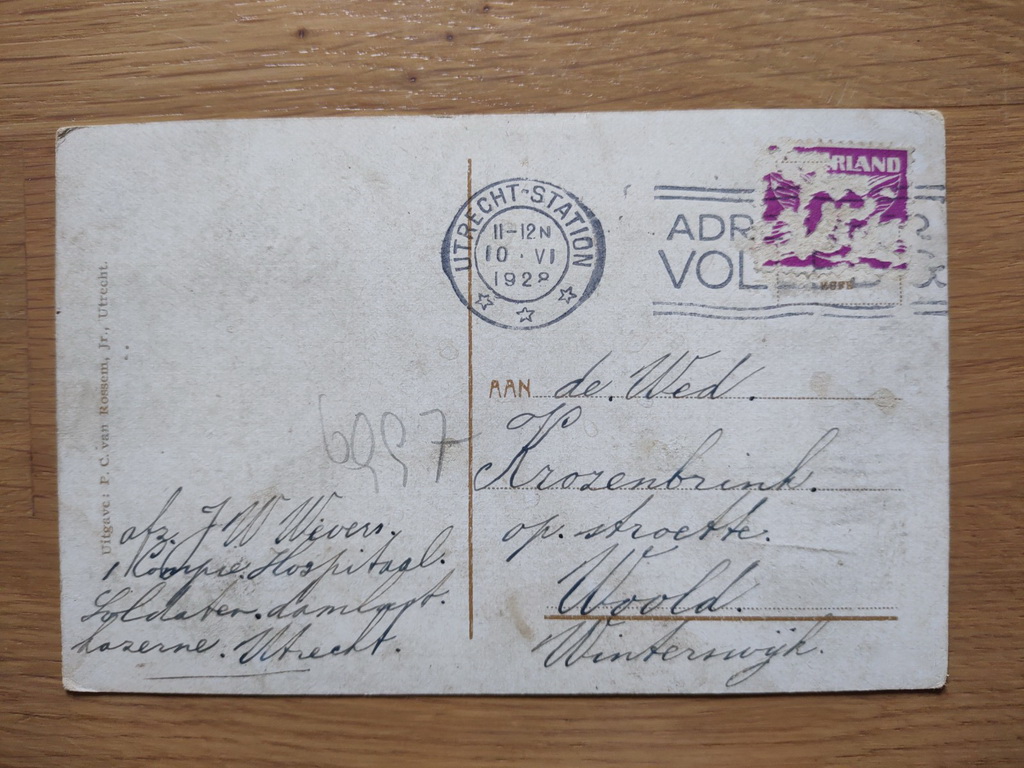 UTRECHT-STATION
11-12N
10·VI
1928
RLAND
ADR
VOL
AAN de. Wed.
Krozenbrink.
op. stroette.
Woold.
Winterswijk.
6997
afz. J W Wevers.
1 Kompie. Hospitaal.
Soldaten.
kazerne. Utrecht.
Uitgave: P. C. van Rossem, Jr., Utrecht.